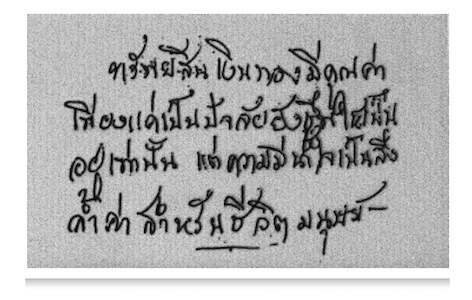 ทรัพย์สิน เงินทองมีคุณค่า
เพียงแค่เป็นปัจจัย
อยู่เท่านั้น แต่ความมีน้ำใจเป็นสิ่ง
ล้ำค่า สำหรับชีวิตมนุษย์